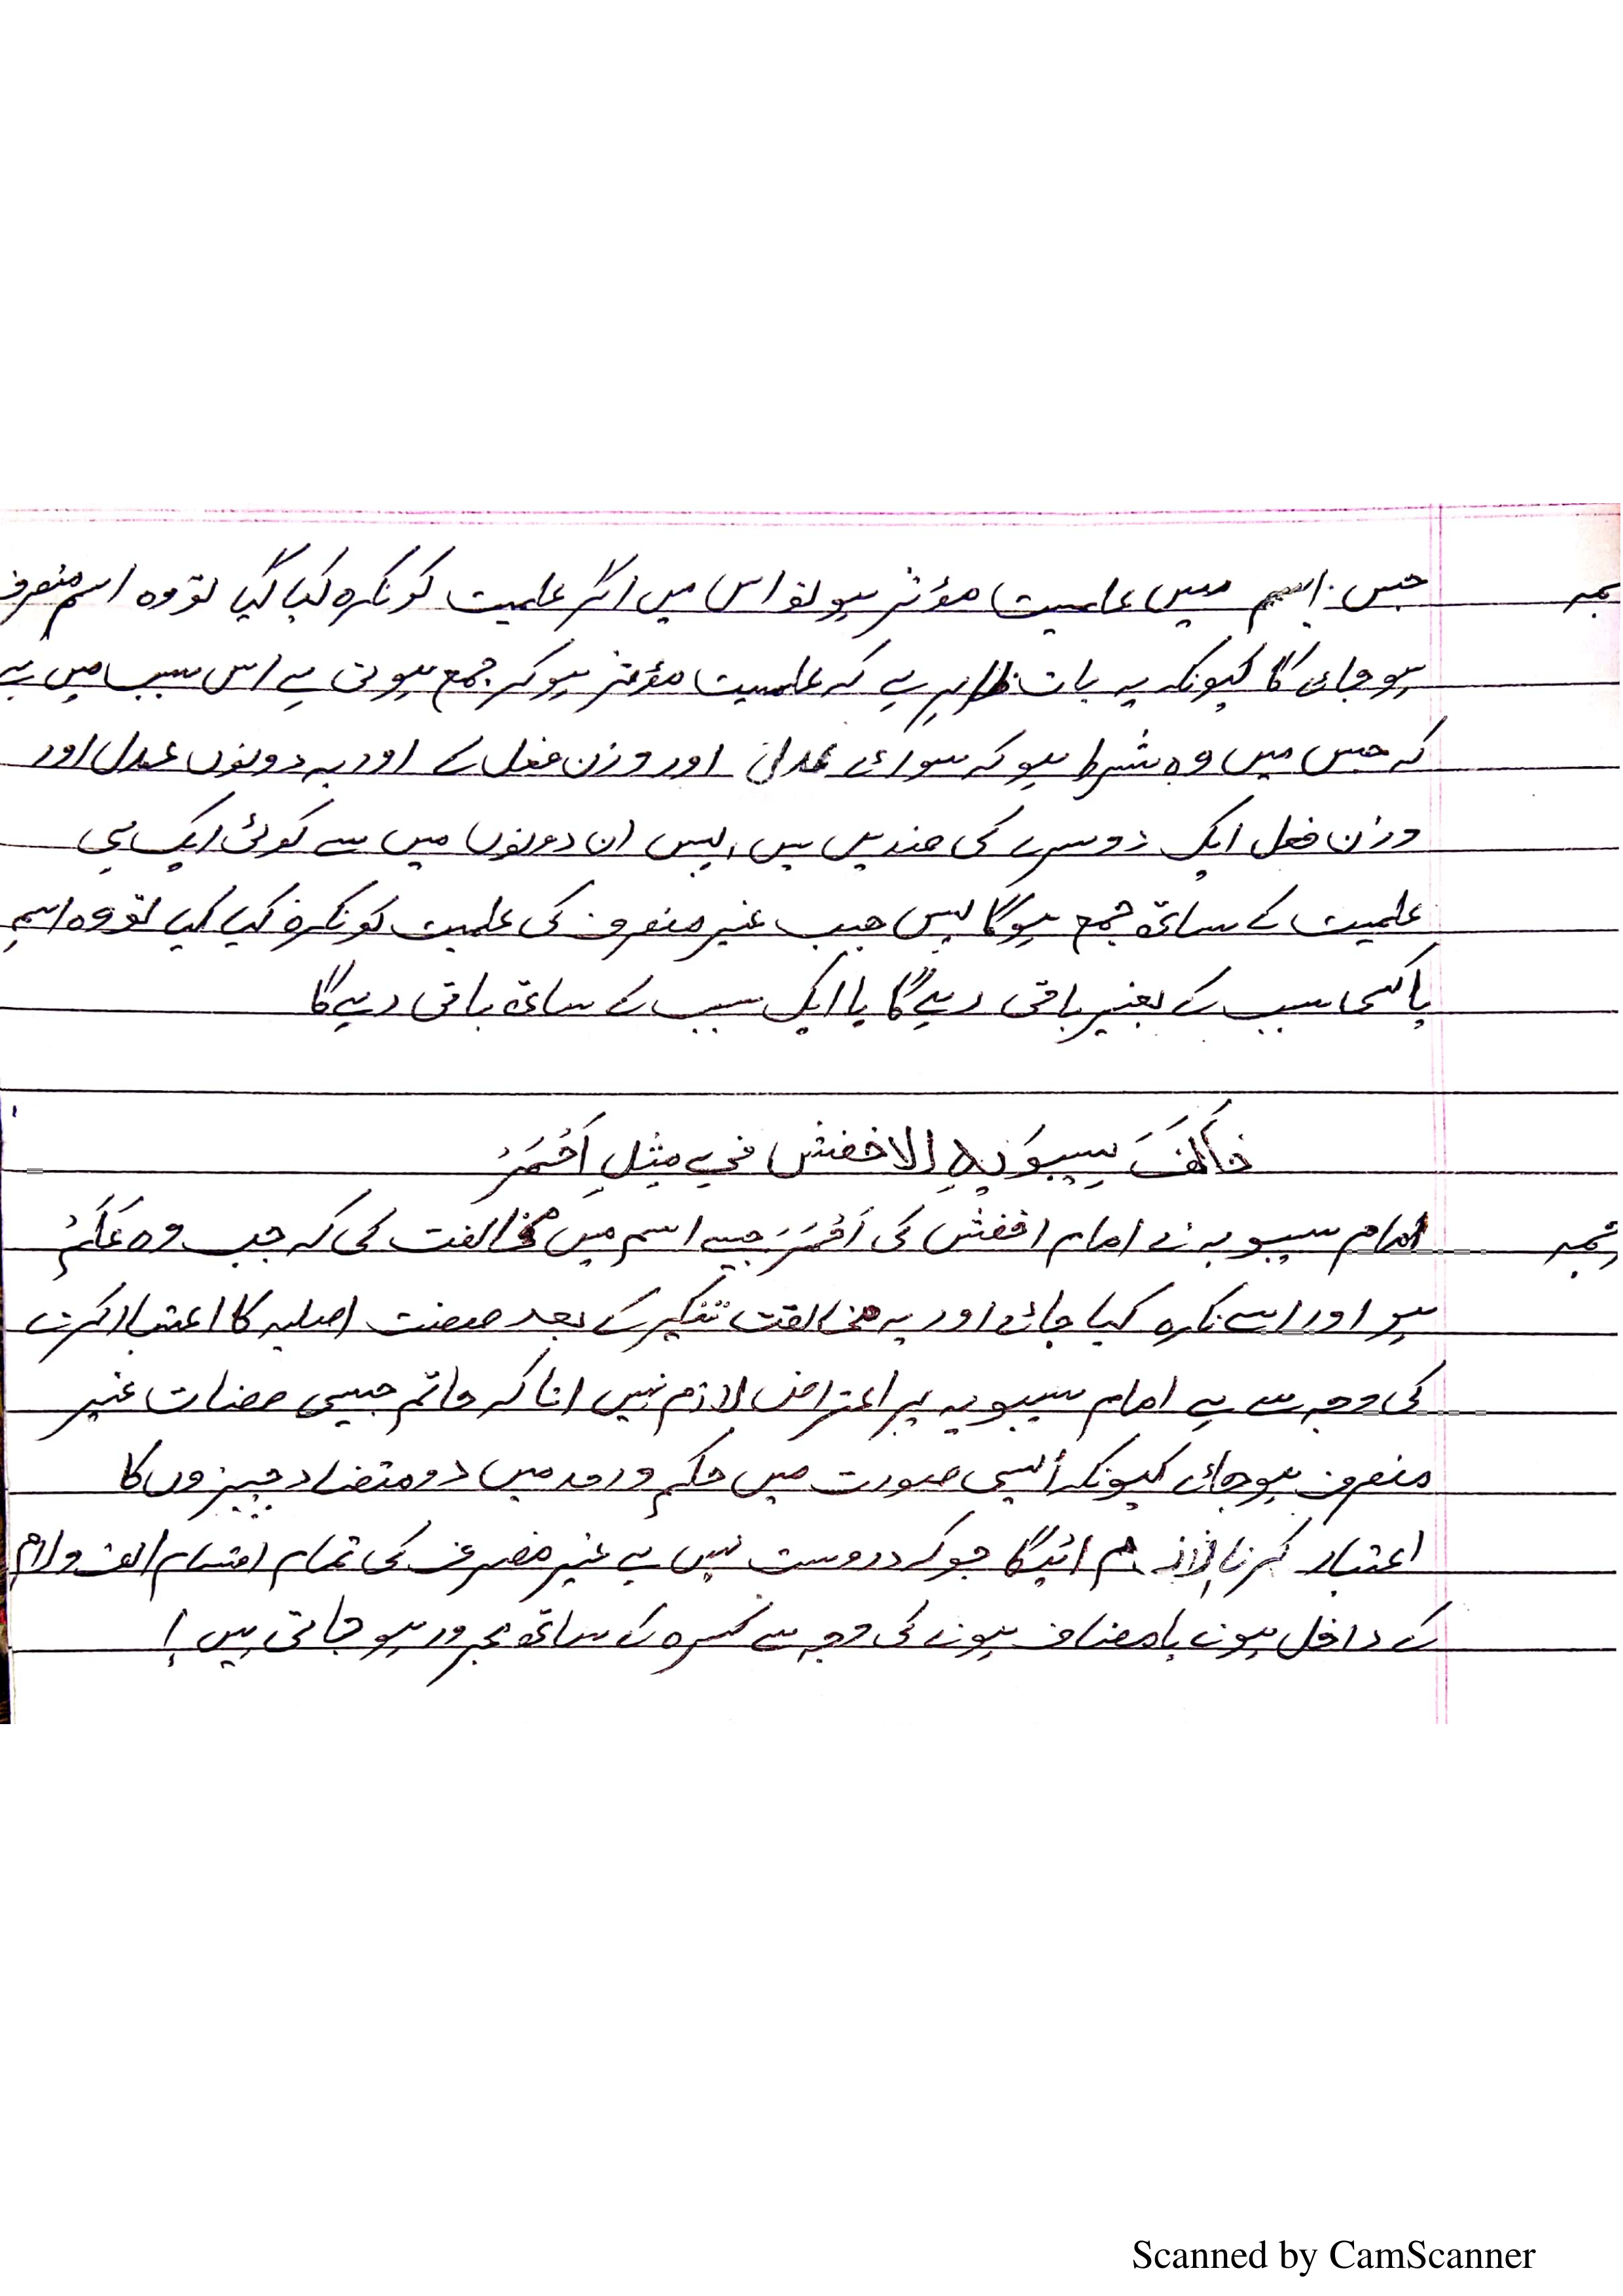 تر جمہ جس اسم میں علمیت مؤثر ہو تو اس میں اگر علمیت کو نکرہ کیا گیا تو وہ اسم منصرف
ہو جائے گا کیونکہ یہ بات ظاہر ہے کہ علمیت مؤثر ہو کر جمع ہوتی ہے اس سبب میں ہے
کہ جس میں وہ شرط ہو کہ سوائے عدل اور وزن فعل کے اور یہ دونوں عدل اور
وزن فعل ایک دوسرے کی ضد ہیں، پس ان دونوں میں سے کوئی ایک ہی
علمیت کے ساتھ جمع ہوگا پس جب غیر منصرف کی علمیت کو نکرہ کیا گیا تو وہ اسم
یا کسی سبب کے بغیر باقی رہے گا یا ایک سبب کے ساتھ باقی رہے گا
خَالَفَ سِیبوَیهِ الاخفش فی مِثلِ اَحْمَرُ
ترجمہ امام سیبویہ نے امام اخفش کی اَحْمَرَ جیسے اسم میں مخالفت کی کہ جب وہ عَلَمْ
ہو اور اسے نکرہ کیا جائے اور یہ مخالفت تنکیر کے بعد صفت اصلیہ کا اعتبار کرنے
کی وجہ سے ہے امام سیبویہ پر اعتراض لازم نہیں اتا کہ حاتم جیسی صفات غیر
منصرف ہو جائے کیونکہ ایسی صورت میں حکم واحد میں دو متضاد چیزوں کا
اعتبار کرنا لازم ائیگا جو کہ دروست نہیں ہے غیر منصرف کی تمام اقسام الف و لام
کے داخل ہونے یا مضاف ہونے کی وجہ سے کسرہ کے ساتھ مجرور ہو جاتی ہیں!
Scanned by CamScanner